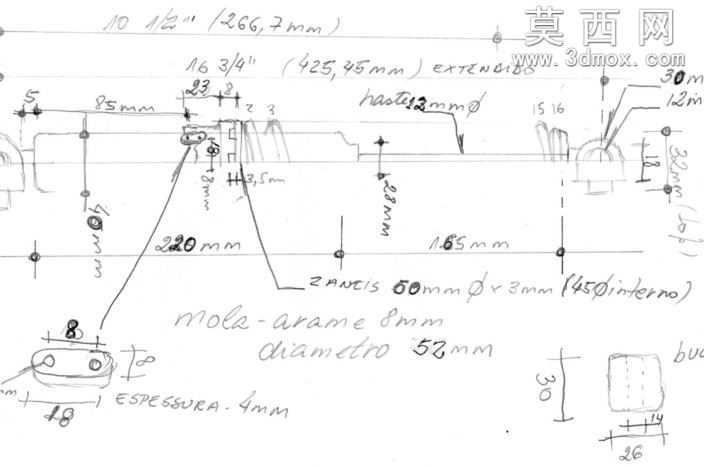 10 1/2" (266,7mm)
莫西网
www.3dmox.com
16 3/4" (425,45mm) EXTENDIDO
30m
23
8
5
85mm
haste 12mm Ø
12m
2
3
15
16
18
8mm
3,5m
18
32mm
40mm
28mm
220mm
165mm
2 ANEIS 60mm Ø x 3mm (45Ø interno)
mola-arame 8mm
diametro 52mm
8
8
18
mm
ESPESSURA - 4mm
30
14
26